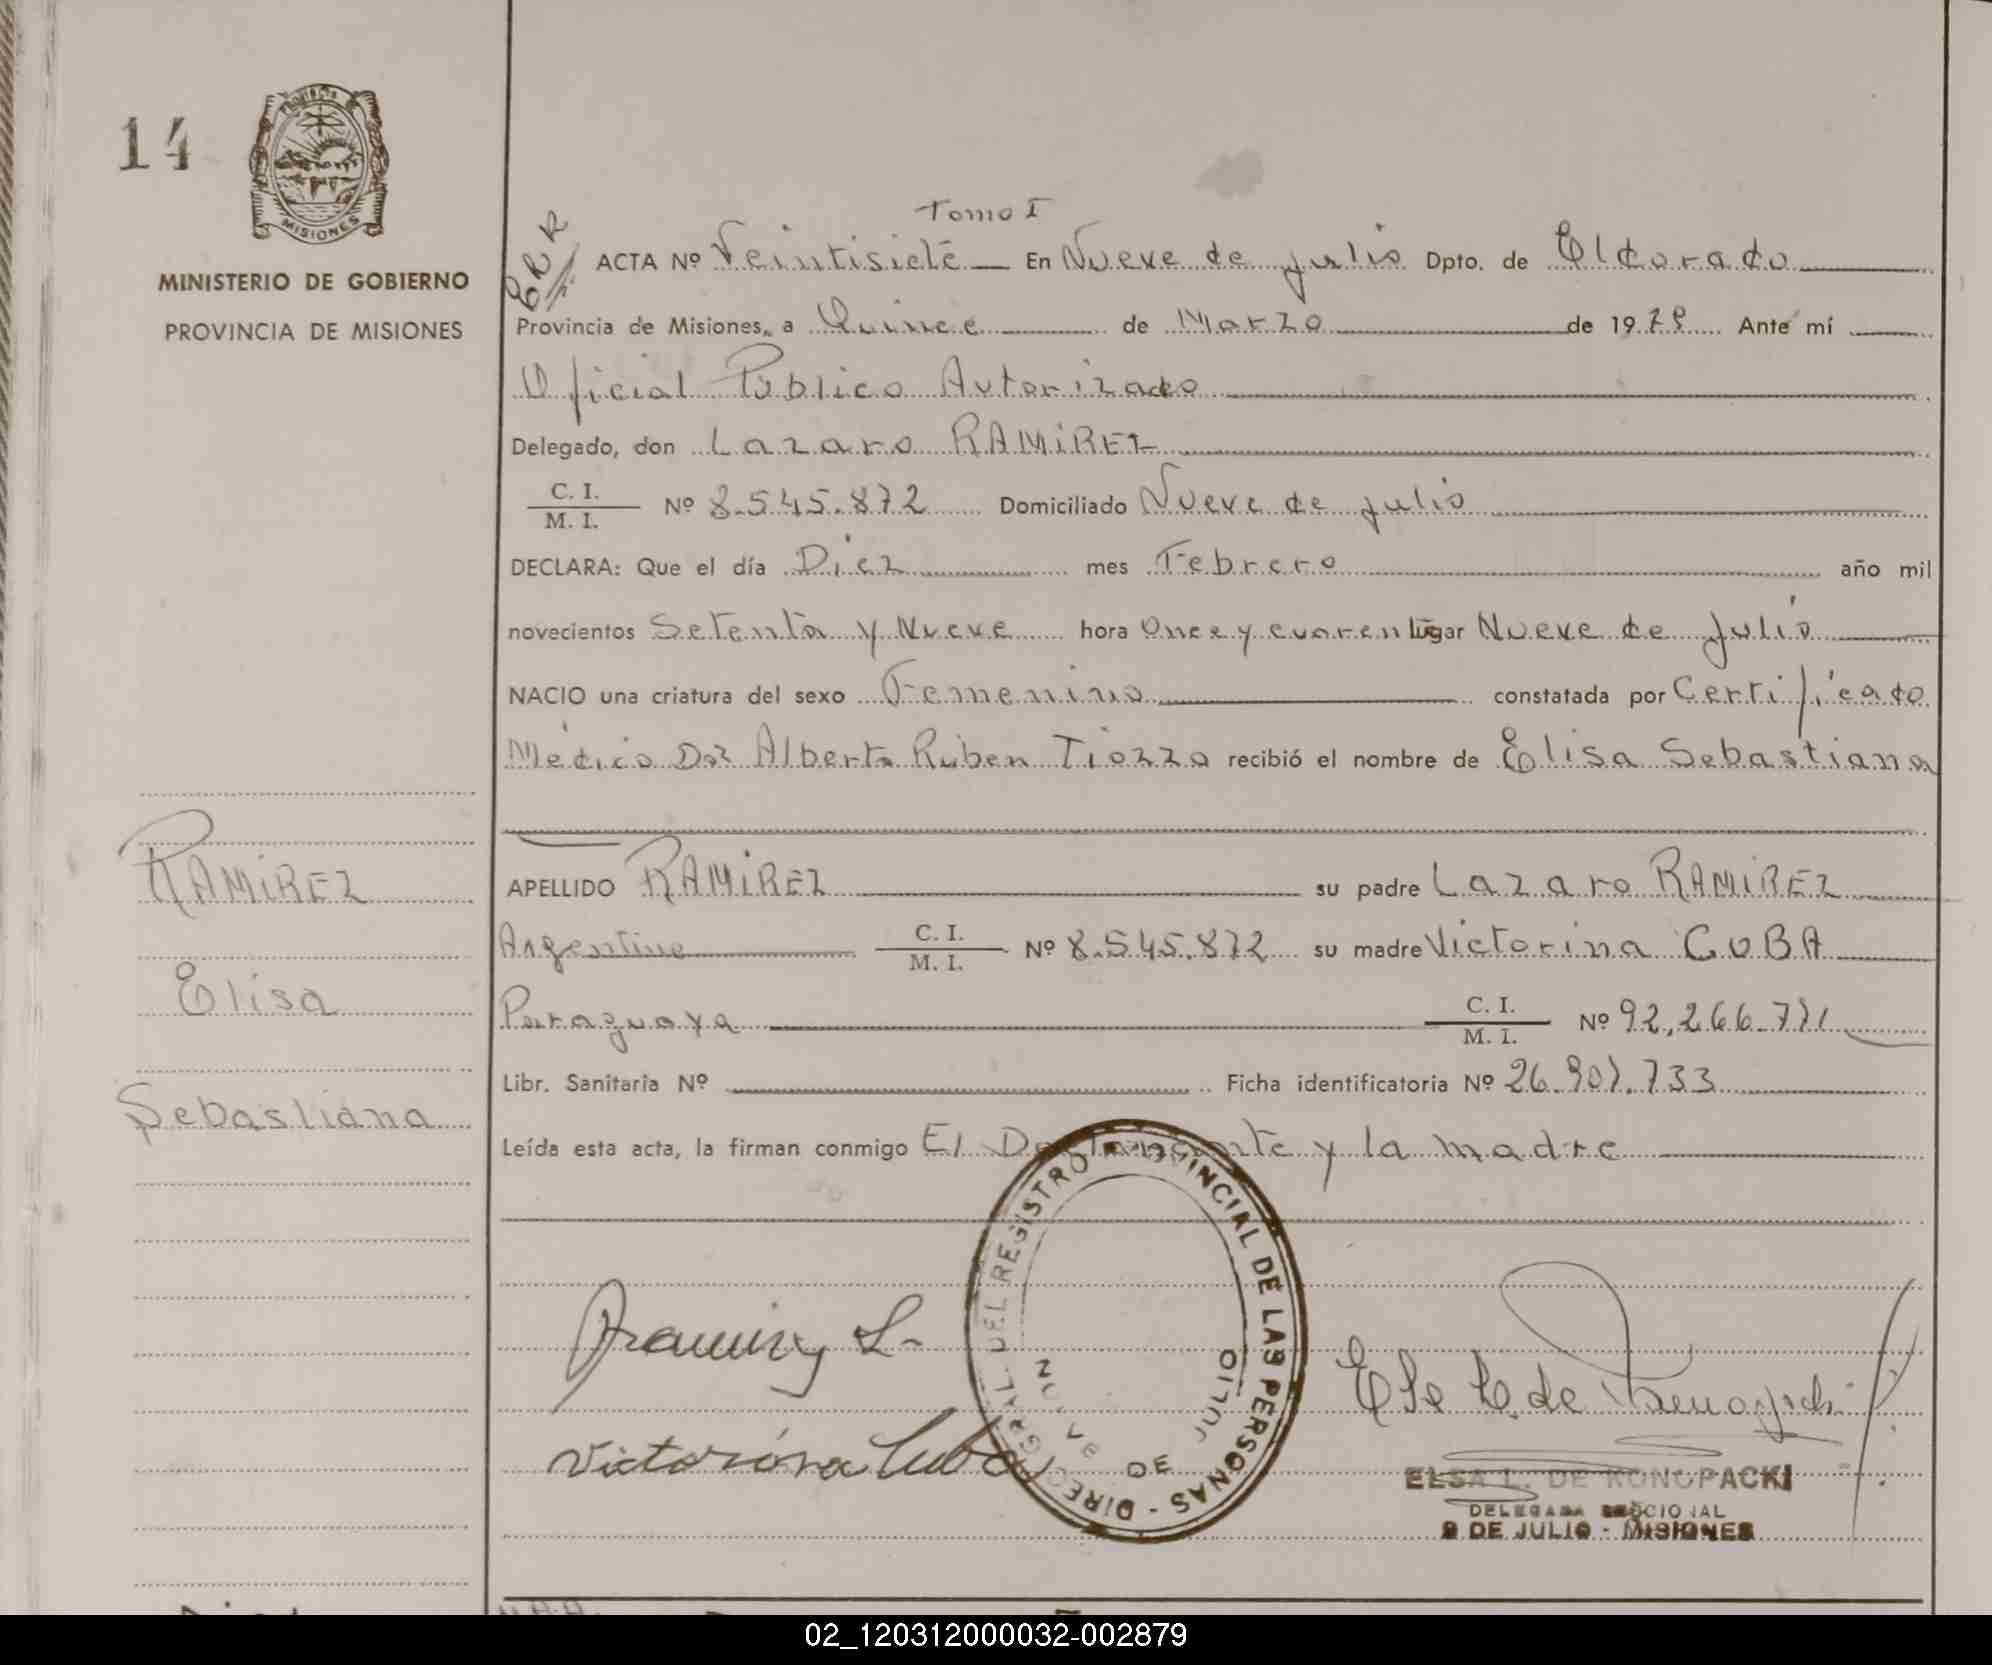 14
MISIONES
MINISTERIO DE GOBIERNO
PROVINCIA DE MISIONES
Tomo I
ACTA Nº Veintisiete En Nueve de julio Dpto. de Eldorado
Provincia de Misiones, a Quince de Marzo de 1979 Ante mí
Oficial Público Autorizado
Delegado, don Lazaro RAMIREZ
C. I.
M. I. Nº 8.545.872 Domiciliado Nueve de julio
DECLARA: Que el día Diez mes Febrero año mil
novecientos Setenta y Nueve hora Once y cuaren lugar Nueve de Julio
NACIO una criatura del sexo Femenino constatada por Certificado
Médico Dor Alberto Ruben Tiozzo recibió el nombre de Elisa Sebastiana
APELLIDO RAMIREZ su padre Lazaro RAMIREZ
Argentino C. I.
M. I. Nº 8.545.872 su madre Victorina CUBA
Paraguaya C. I.
M. I. Nº 92.266.771
Libr. Sanitaria Nº Ficha identificatoria Nº 26.907.733
Leída esta acta, la firman conmigo El Declarante y la madre
RAMIREZ
Elisa
Sebastiana
Ramirez L.
Victorina Cuba
DIREC. GRAL. DEL REGISTRO PROVINCIAL DE LAS PERSONAS -
NUEVE DE JULIO
ELSA L. DE KONOPACKI
DELEGADA SECCIONAL
9 DE JULIO - MISIONES
02_120312000032-002879